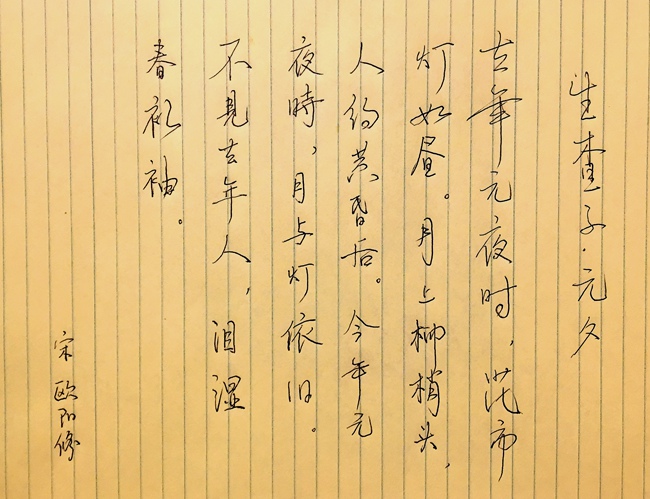 生查子·元夕
去年元夜时，花市
灯如昼。月上柳梢头，
人约黄昏后。今年元
夜時，月与灯依旧。
不見去年人，泪湿
春衫袖。
宋 欧阳修